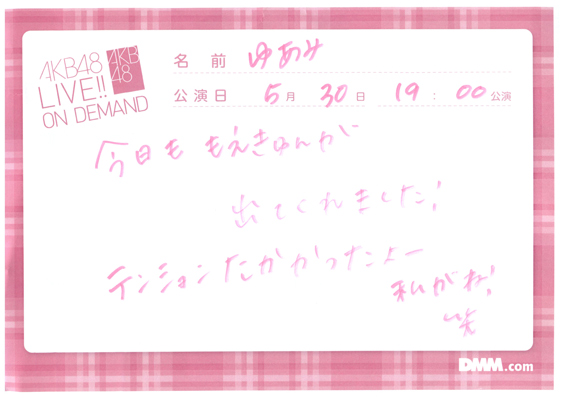 AKB48
LIVE!!
ON DEMAND
AKB
48
名前 ゆあみ
公演日 5月 30日 19:00公演
今日も もえきゅんが
出てくれました!
テンションたかかったよー
私がね!
笑
DMM.com